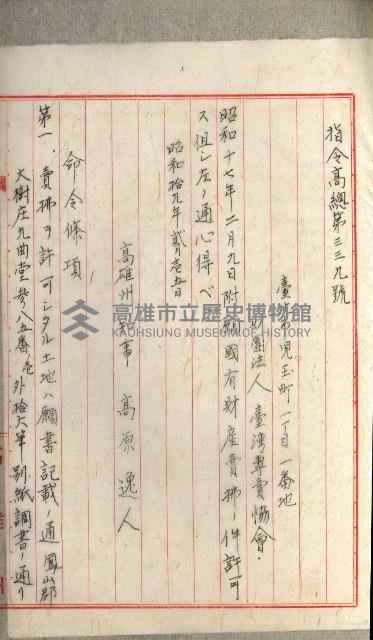 指令高總第三三九號
臺北市兒玉町一丁目一番地
財團法人 臺灣專賣協會
昭和十七年二月九日附願國有財產賣拂ノ件許可
ス但シ左ノ通心得ベシ
昭和拾九年貳月壱五日
高雄州知事 高原逸人
命令條項
第一、賣拂ヲ許可シタル土地ハ願書記載ノ通鳳山郡
大樹庄九曲堂參八五番ノ壱外拾六筆別紙調書ノ通リ
高雄市立歷史博物館
KAOHSIUNG MUSEUM OF HISTORY